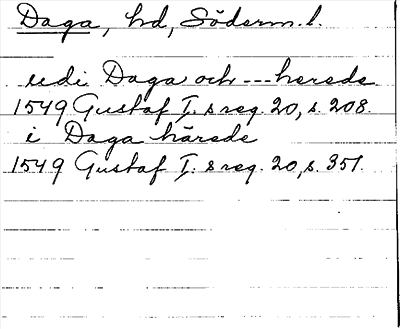 Daga, hd, Söderm. l.
udi Daga och --- herede
1549 Gustaf I. s reg. 20, s. 208.
i Daga härede
1549 Gustaf I. s reg. 20, s. 351.